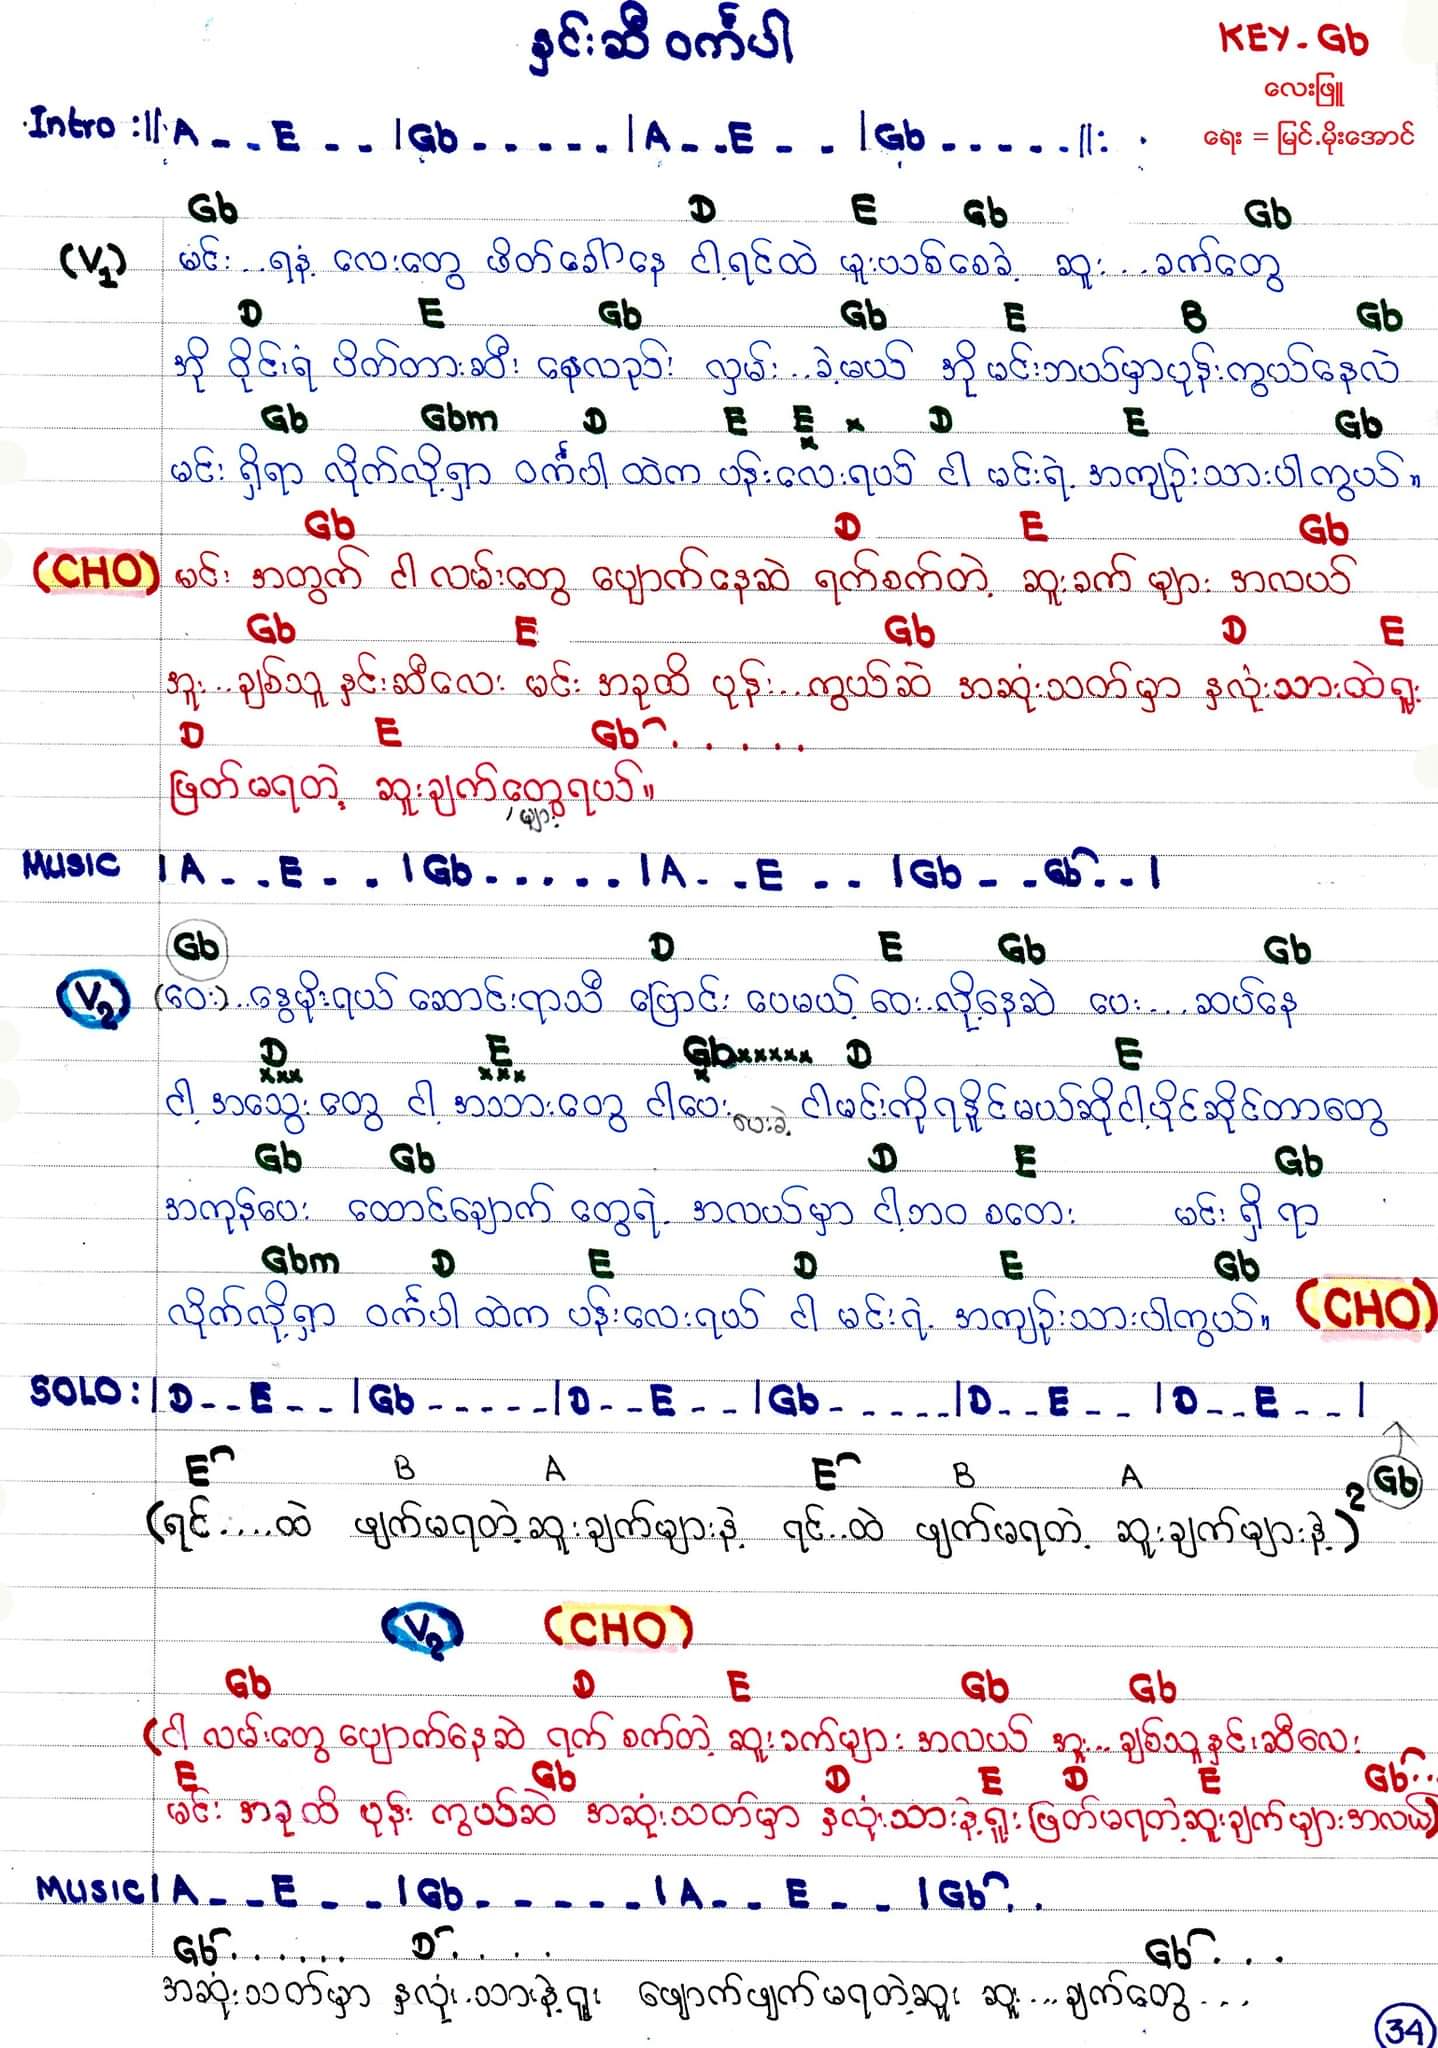 နှင်းဆီ ဝင်္ကပါ
KEY - Gb
လေးဖြူ
ရေး = မြင့်မိုးအောင်
Intro :|| A _ _ E _ _ | Gb _ _ _ _ _ | A _ _ E _ _ | Gb _ _ _ _ _ ||:
Gb D E Gb Gb
(V1) မင်း...ရနံ့ လေးတွေ ဖိတ်ခေါ်နေ ငါ့ရင်ထဲ မူးယစ်စေခဲ့ ဆူး...ခက်တွေ
D E Gb Gb E B Gb
အို ဝိုင်းရံ ပိတ်တားဆီး နေလည်း လှမ်း..ခဲ့မယ် အို မင်းဘယ်မှာပုန်းကွယ်နေလဲ
Gb Gbm D E E x D E Gb
မင်း ရှိရာ လိုက်လို့ရှာ ဝင်္ကပါ ထဲက ပန်းလေးရယ် ငါ မင်းရဲ့ အကျဉ်းသားပါကွယ်။
Gb D E Gb
(CHO) မင်း အတွက် ငါ လမ်းတွေ ပျောက်နေဆဲ ရက်စက်တဲ့ ဆူးခက် များ အလယ်
Gb E Gb D E
အူး..ချစ်သူ နှင်းဆီလေး မင်း အခုထိ ပုန်း..ကွယ်ဆဲ အဆုံးသတ်မှာ နှလုံးသားထဲရှူး
D E Gb . . . . .
ဖြတ်မရတဲ့ ဆူးချက်တွေရယ်။
များ
MUSIC | A _ _ E _ _ | Gb _ _ _ _ _ | A _ _ E _ _ | Gb _ _ Gb . . |
Gb D E Gb Gb
V2 (ဝေး)..နွေမိုးရယ် ဆောင်းရာသီ ပြောင်း ပေမယ့် ဝေး..လို့နေဆဲ ပေး...ဆပ်နေ
D xxx E xxx Gb xxxxx D E
ငါ့ အသွေးတွေ ငါ့ အသားတွေ ငါပေး ငါမင်းကိုရနိုင်မယ်ဆိုငါ့ပိုင်ဆိုင်တာတွေ
ပေးခဲ့
Gb Gb D E Gb
အကုန်ပေး ထောင်ချောက် တွေရဲ့ အလယ်မှာ ငါ့ဘဝ စတေး မင်း ရှိ ရာ
Gbm D E D E Gb
လိုက်လို့ရှာ ဝင်္ကပါ ထဲက ပန်းလေးရယ် ငါ မင်းရဲ့ အကျဉ်းသားပါကွယ်။ (CHO)
SOLO : | D _ _ E _ _ | Gb _ _ _ _ _ | D _ _ E _ _ | Gb _ _ _ _ _ | D _ _ E _ _ | D _ _ E _ _ |
E B A E B A Gb
(ရင်....ထဲ ဖျက်မရတဲ့ ဆူးချက်များနဲ့ ရင်..ထဲ ဖျက်မရတဲ့ ဆူးချက်များနဲ့)2
V2 (CHO)
Gb D E Gb Gb
(ငါ လမ်းတွေ ပျောက်နေဆဲ ရက် စက်တဲ့ ဆူးခက်များ အလယ် အူး...ချစ်သူနှင်းဆီလေး
E Gb D E D E Gb . .
မင်း အခုထိ ပုန်း ကွယ်ဆဲ အဆုံးသတ်မှာ နှလုံးသားနဲ့ရှူး ဖြတ်မရတဲ့ဆူးချက်များအလယ်)
MUSIC | A _ _ E _ _ | Gb _ _ _ _ _ | A _ _ E _ _ | Gb . .
Gb . . . . . . D . . . . Gb . . .
အဆုံးသတ်မှာ နှလုံး.သားနဲ့ရှူး ဖျောက်ဖျက်မရတဲ့ဆူး ဆူး...ချက်တွေ...
34